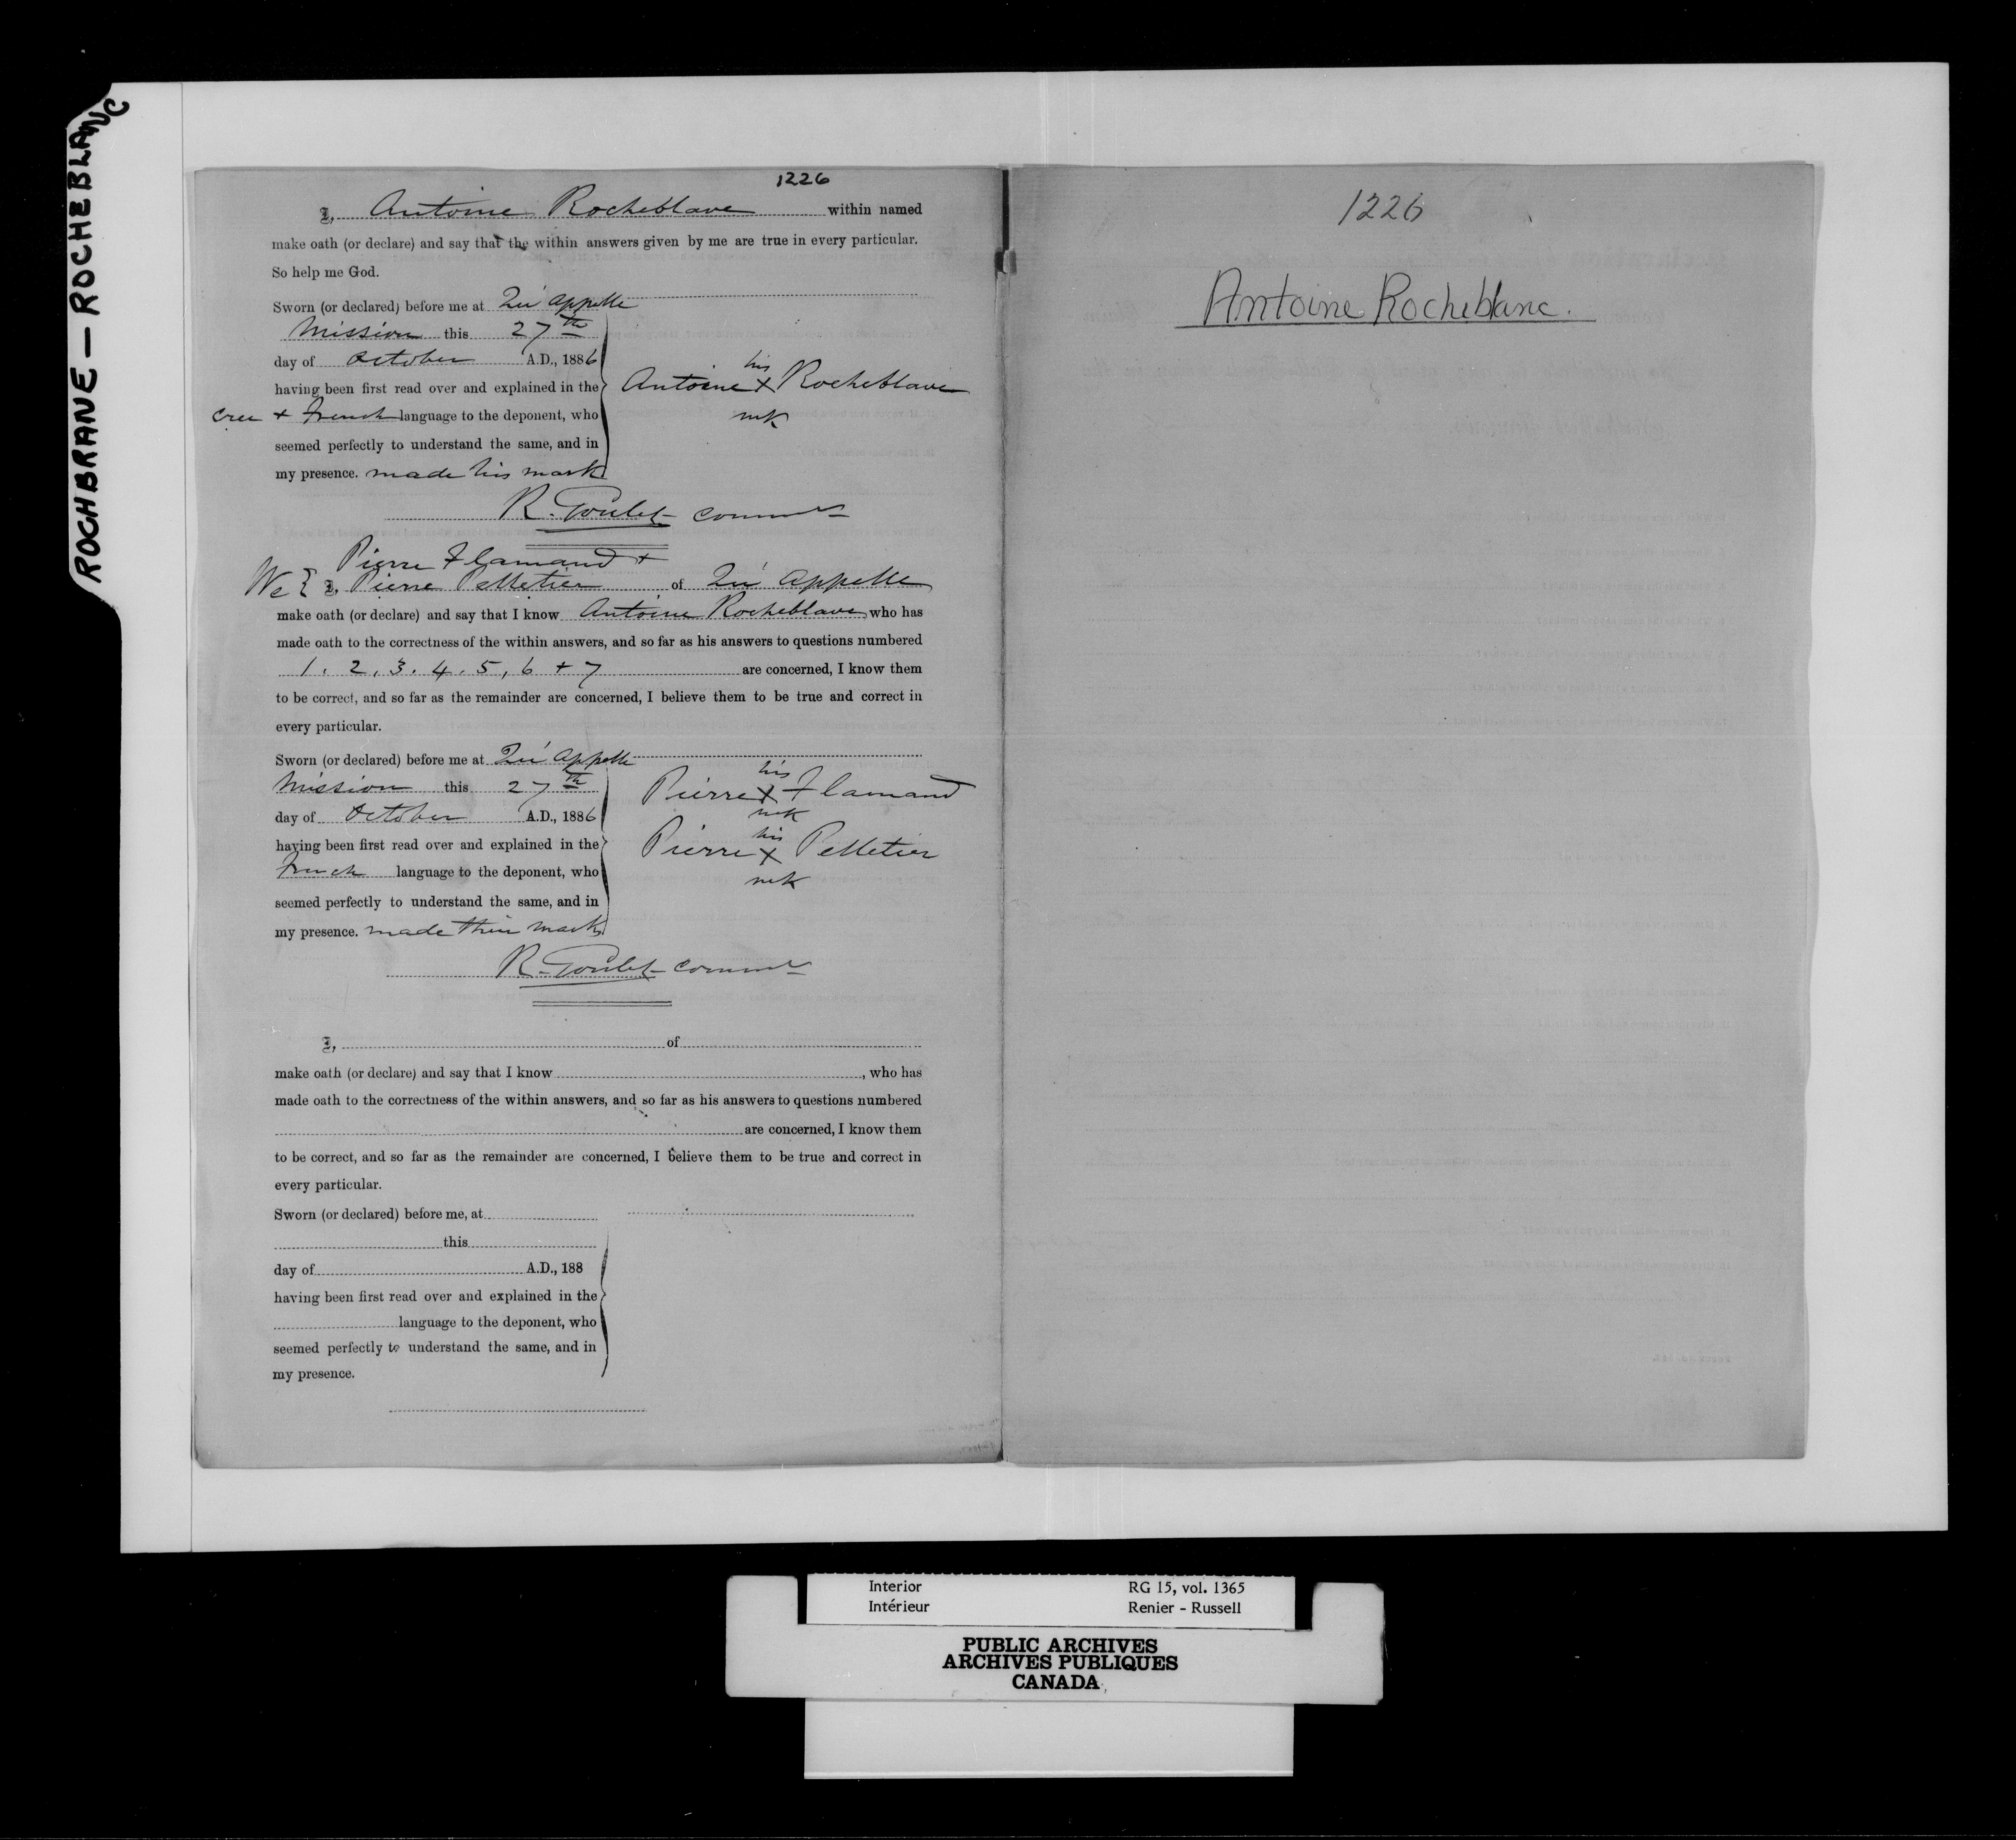 ROCHBRANE — ROCHEBLANC
1226
I, Antoine Rocheblave within named
make oath (or declare) and say that the within answers given by me are true in every particular.
So help me God.
Sworn (or declared) before me at Qu'appelle
Mission this 27th
day of October A.D., 1886
having been first read over and explained in the
Cree + French language to the deponent, who
seemed perfectly to understand the same, and in
my presence. made his mark
his
Antoine X Rocheblave
mk
R. Goulet Commr
Pierre Flamand +
We { I, Pierre Pelletier of Qu'Appelle
make oath (or declare) and say that I know Antoine Rocheblave, who has
made oath to the correctness of the within answers, and so far as his answers to questions numbered
1. 2, 3. 4. 5, 6 + 7 are concerned, I know them
to be correct, and so far as the remainder are concerned, I believe them to be true and correct in
every particular.
Sworn (or declared) before me at Qu'appelle
Mission this 27th
day of October A.D., 1886
having been first read over and explained in the
French language to the deponent, who
seemed perfectly to understand the same, and in
my presence. made their marks
his
Pierre X Flamand
mk
his
Pierre X Pelletier
mk
R. Goulet Commr
I, of
make oath (or declare) and say that I know , who has
made oath to the correctness of the within answers, and so far as his answers to questions numbered
are concerned, I know them
to be correct, and so far as the remainder are concerned, I believe them to be true and correct in
every particular.
Sworn (or declared) before me, at
this
day of A.D., 188
having been first read over and explained in the
language to the deponent, who
seemed perfectly to understand the same, and in
my presence.
1226
Antoine Rocheblanc.
Interior RG 15, vol. 1365
Intérieur Renier - Russell
PUBLIC ARCHIVES
ARCHIVES PUBLIQUES
CANADA